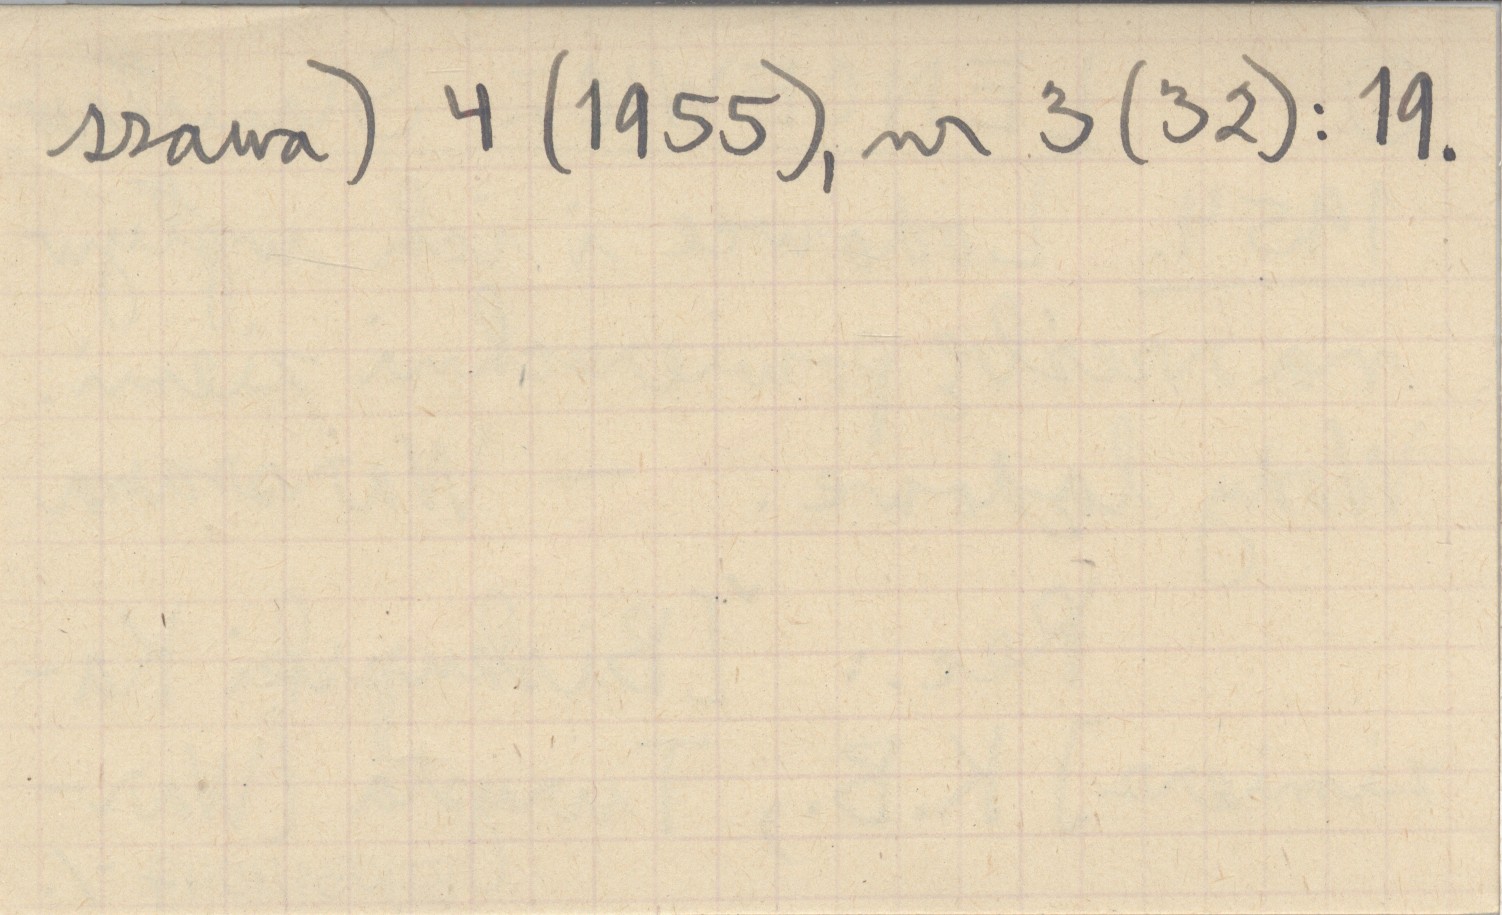 szawa) 4 (1955), nr 3 (32): 19.